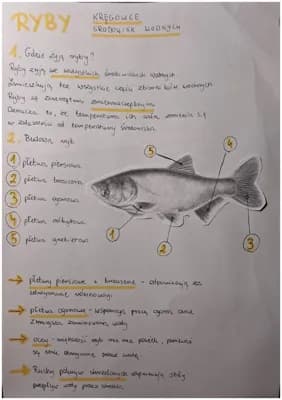 RYBY KRĘGOWCE
ŚRODOWISK WODNYCH
1. Gdzie żyją ryby?
Ryby żyją we wszystkich środowiskach wodnych.
Zamieszkują też wszystkie części zbiorników wodnych
Ryby są zwierzętami zmiennocieplnymi
Oznacza to, że temperatura ich ciała zmienia się
w zależności od temperatury środowiska.
2. Budowa ryb
1 płetwa piersiowa
2 płetwa brzuszna
3 płetwa ogonowa
4 płetwa odbytowa
5 płetwa grzbietowa
5
4
1
2
3
→ płetwy piersiowe i brzuszne - odpowiadają za
utrzymywanie równowagi
→ płetwa ogonowa - wspomaga pracę ogona oraz
zmienia
→ oczy - większość ryb nie ma powiek, ponieważ
są stale obmywane przez wodę.
→ Ruchy pokryw skrzelowych zapewniają stały
przepływ wody przez skrzela.